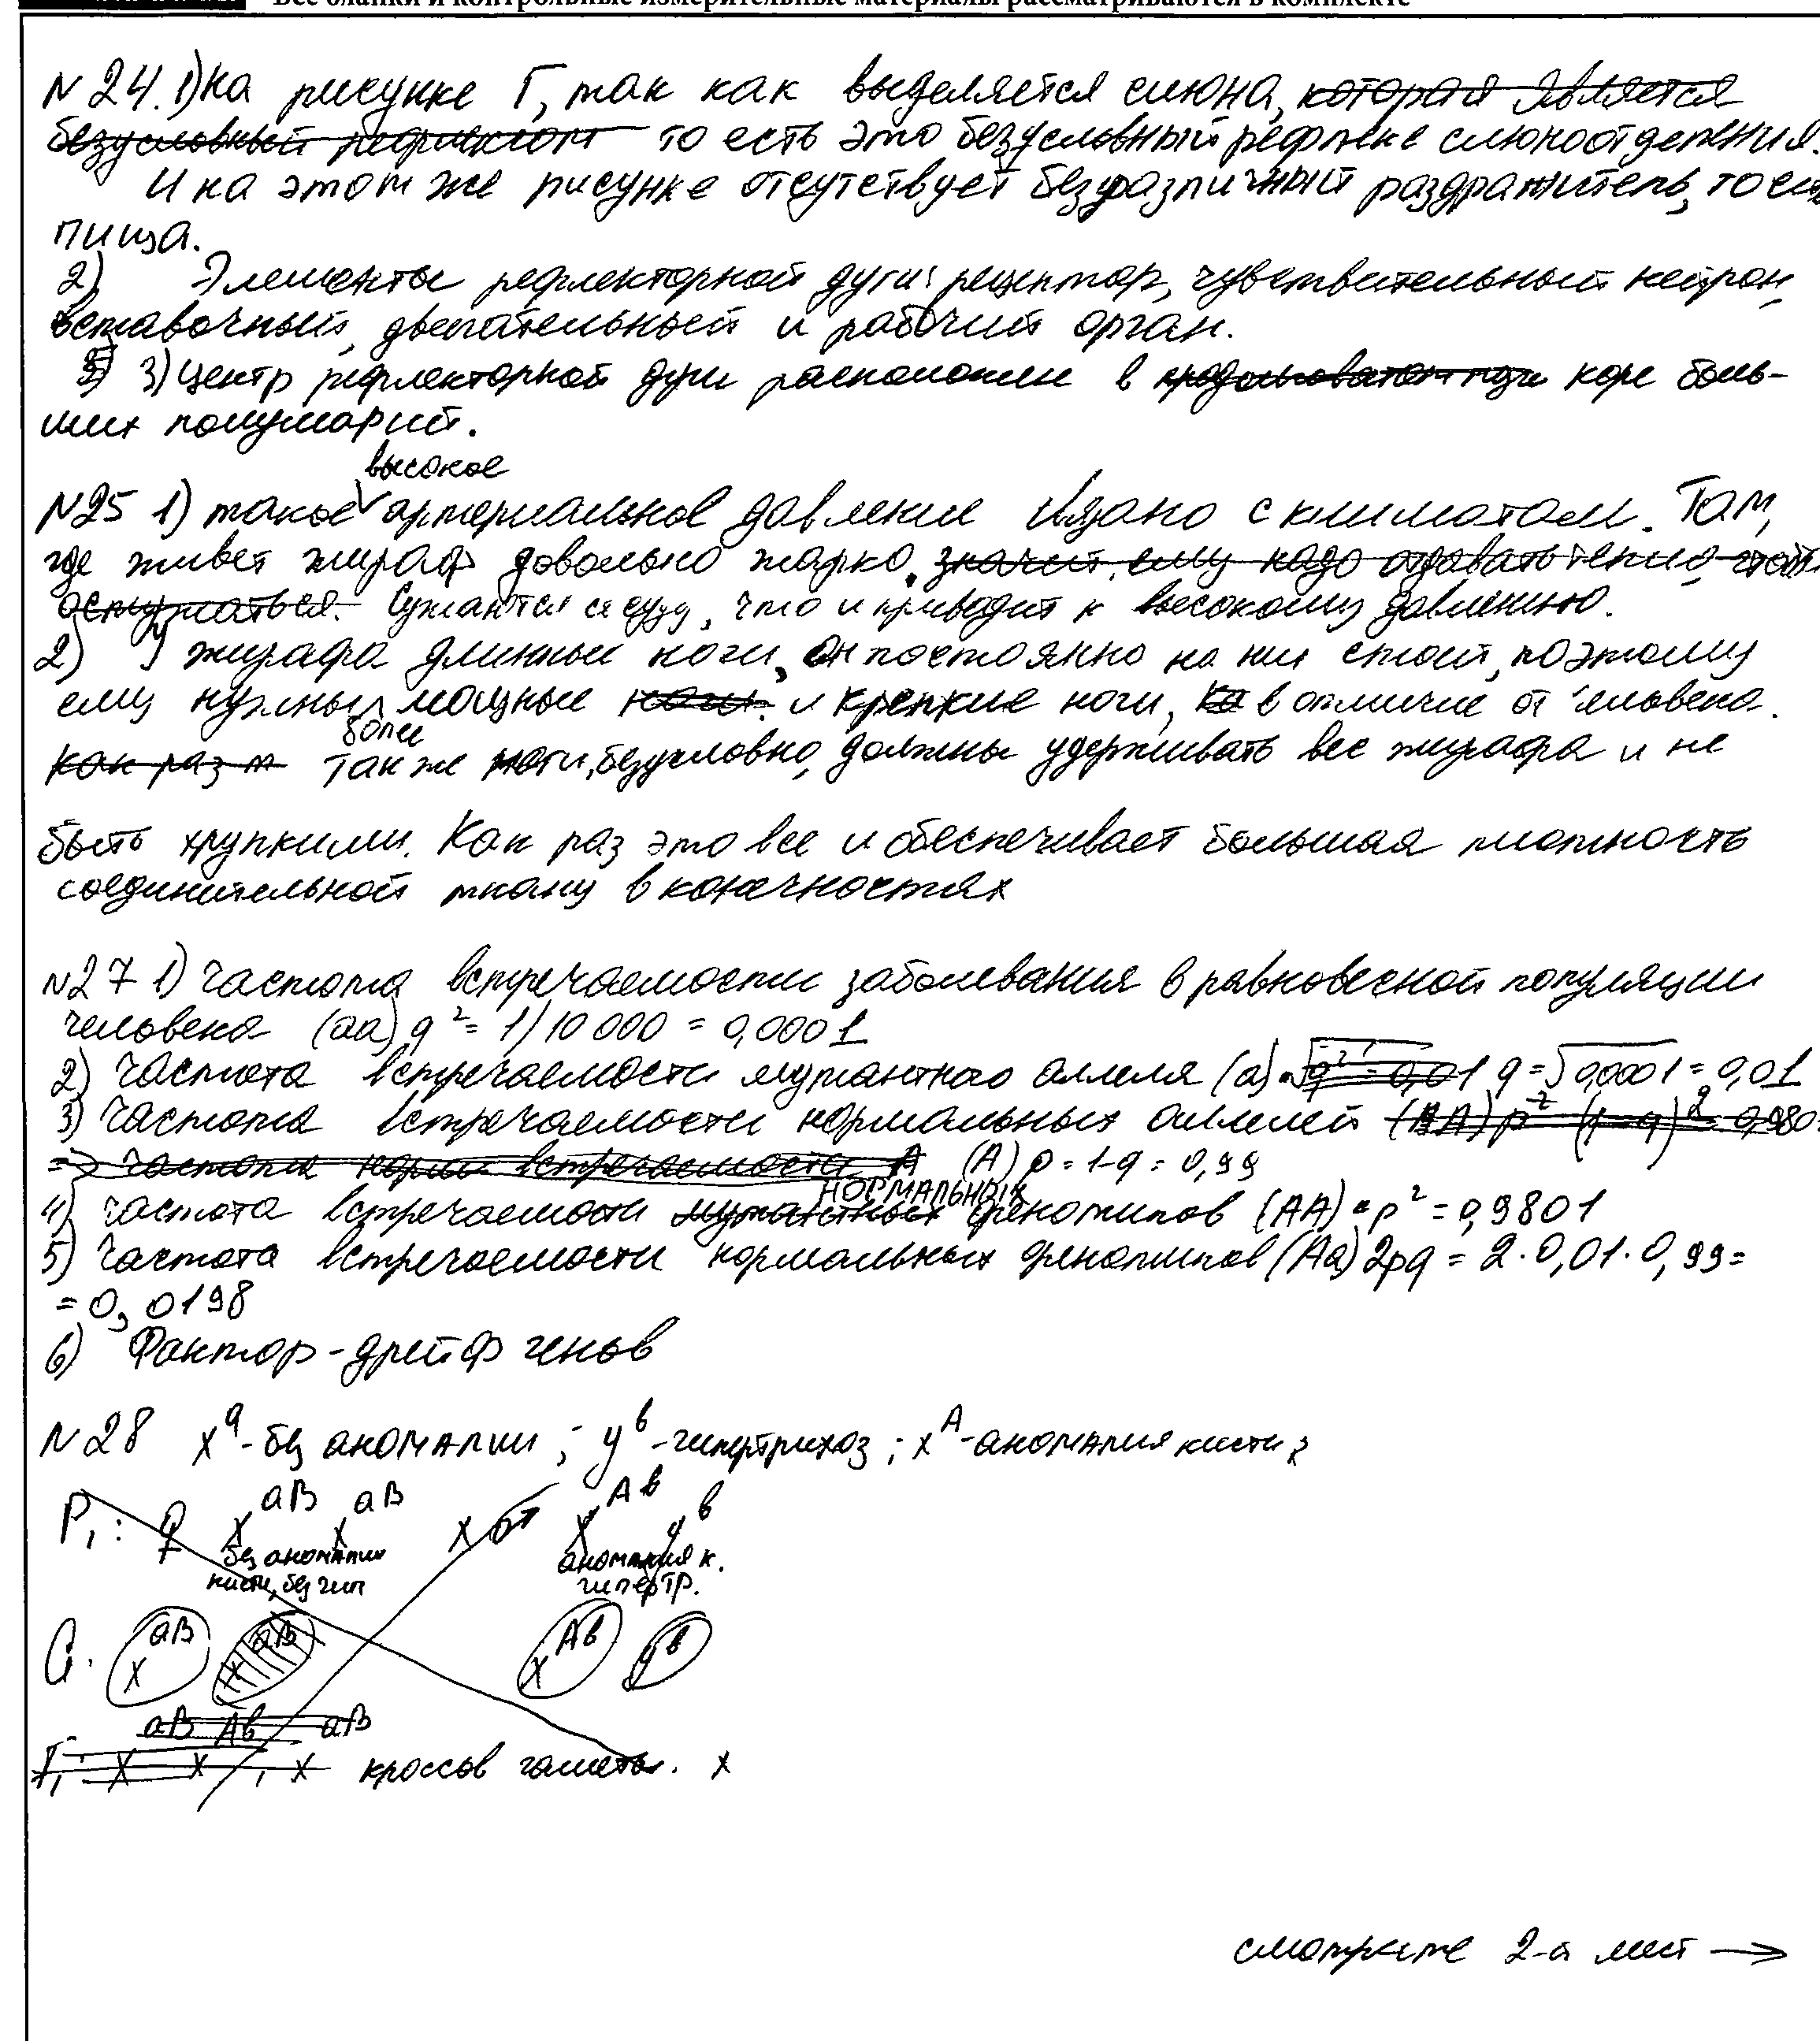 Все бланки и контрольные измерительные материалы рассматриваются в комплекте
N 24. 1) На рисунке Г, так как выделяется слюна, которая является
безусловный рефлексом то есть это безусловный рефлекс слюноотделения.
И на этом же рисунке отсутствует безразличный раздражитель, то есть
пища.
2) Элементы рефлекторной дуги: рецептор, чувствительный нейрон,
вставочный, двигательный и рабочий орган.
3) Центр рефлекторной дуги расположен в продолговатом мозге коре боль-
ших полушарий.
высокое
N25 1) такое артериальное давление связано с климатом. Там,
где живет жираф довольно жарко. значит, ему надо отдавать тепло, чтобы
остужаться. Сужаются сосуды, что и приводит к высокому давлению.
2) У жирафа длинные ноги, он постоянно на них стоит, поэтому
ему нужны мощные ноги. и крепкие ноги, в отличие от человека.
более
как раз т Также ноги, безусловно, должны удерживать вес жирафа и не
быть хрупкими. Как раз это все и обеспечивает большая плотность
соединительной ткани в конечностях
N27 1) Частота встречаемости заболевания в равновесной популяции
человека (aa) q² = 1/10 000 = 0,0001
2) Частота встречаемости мутантного аллеля (a) √q² = 0,01 q = √0,0001 = 0,01
3) Частота встречаемости нормальных аллелей (AA) p² (1-q)² = 0,980
=> частота норм встречаемости A (A) p = 1-q = 0,99
НОРМАЛЬНЫХ
4) частота встречаемости мутантных фенотипов (AA) = p² = 0,9801
5) Частота встречаемости нормальных фенотипов (Aa) 2pq = 2·0,01·0,99=
= 0,0198
6) Фактор - дрейф генов
N 28 xᵃ - без аномалии ; yᵇ - гипертрихоз ; xᴬ - аномалия кисти ;
P₁ : ♀ X^aB X^aB x ♂ X^Ab y^b
без аномалии аномалия к.
кисти, без гип гипертр.
G. X^aB X^aB X^Ab y^b
F₁ X^aB X^Ab , X^aB кроссов гаметы. X
смотрите 2-й лист →